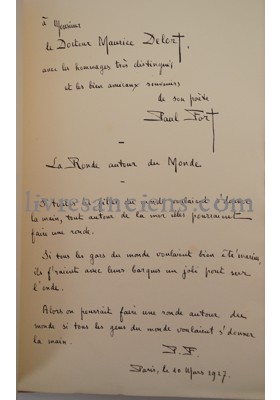 à Monsieur
le Docteur Maurice Delort,
avec les hommages très distingués
et les bien amicaux souvenirs
de son poète
Paul Fort
—
La Ronde autour du Monde
—
Si toutes les filles du monde voulaient s'donner
la main, tout autour de la mer elles pourraient
faire une ronde.
Si tous les gars du monde voulaient bien êtr' marins,
ils f'raient avec leurs barques un joli pont sur
l'onde.
Alors on pourrait faire une ronde autour du
monde si tous les gars du monde voulaient s'donner
la main.
P. F.
Paris, le 20 Mars 1927.
livresanciens.com